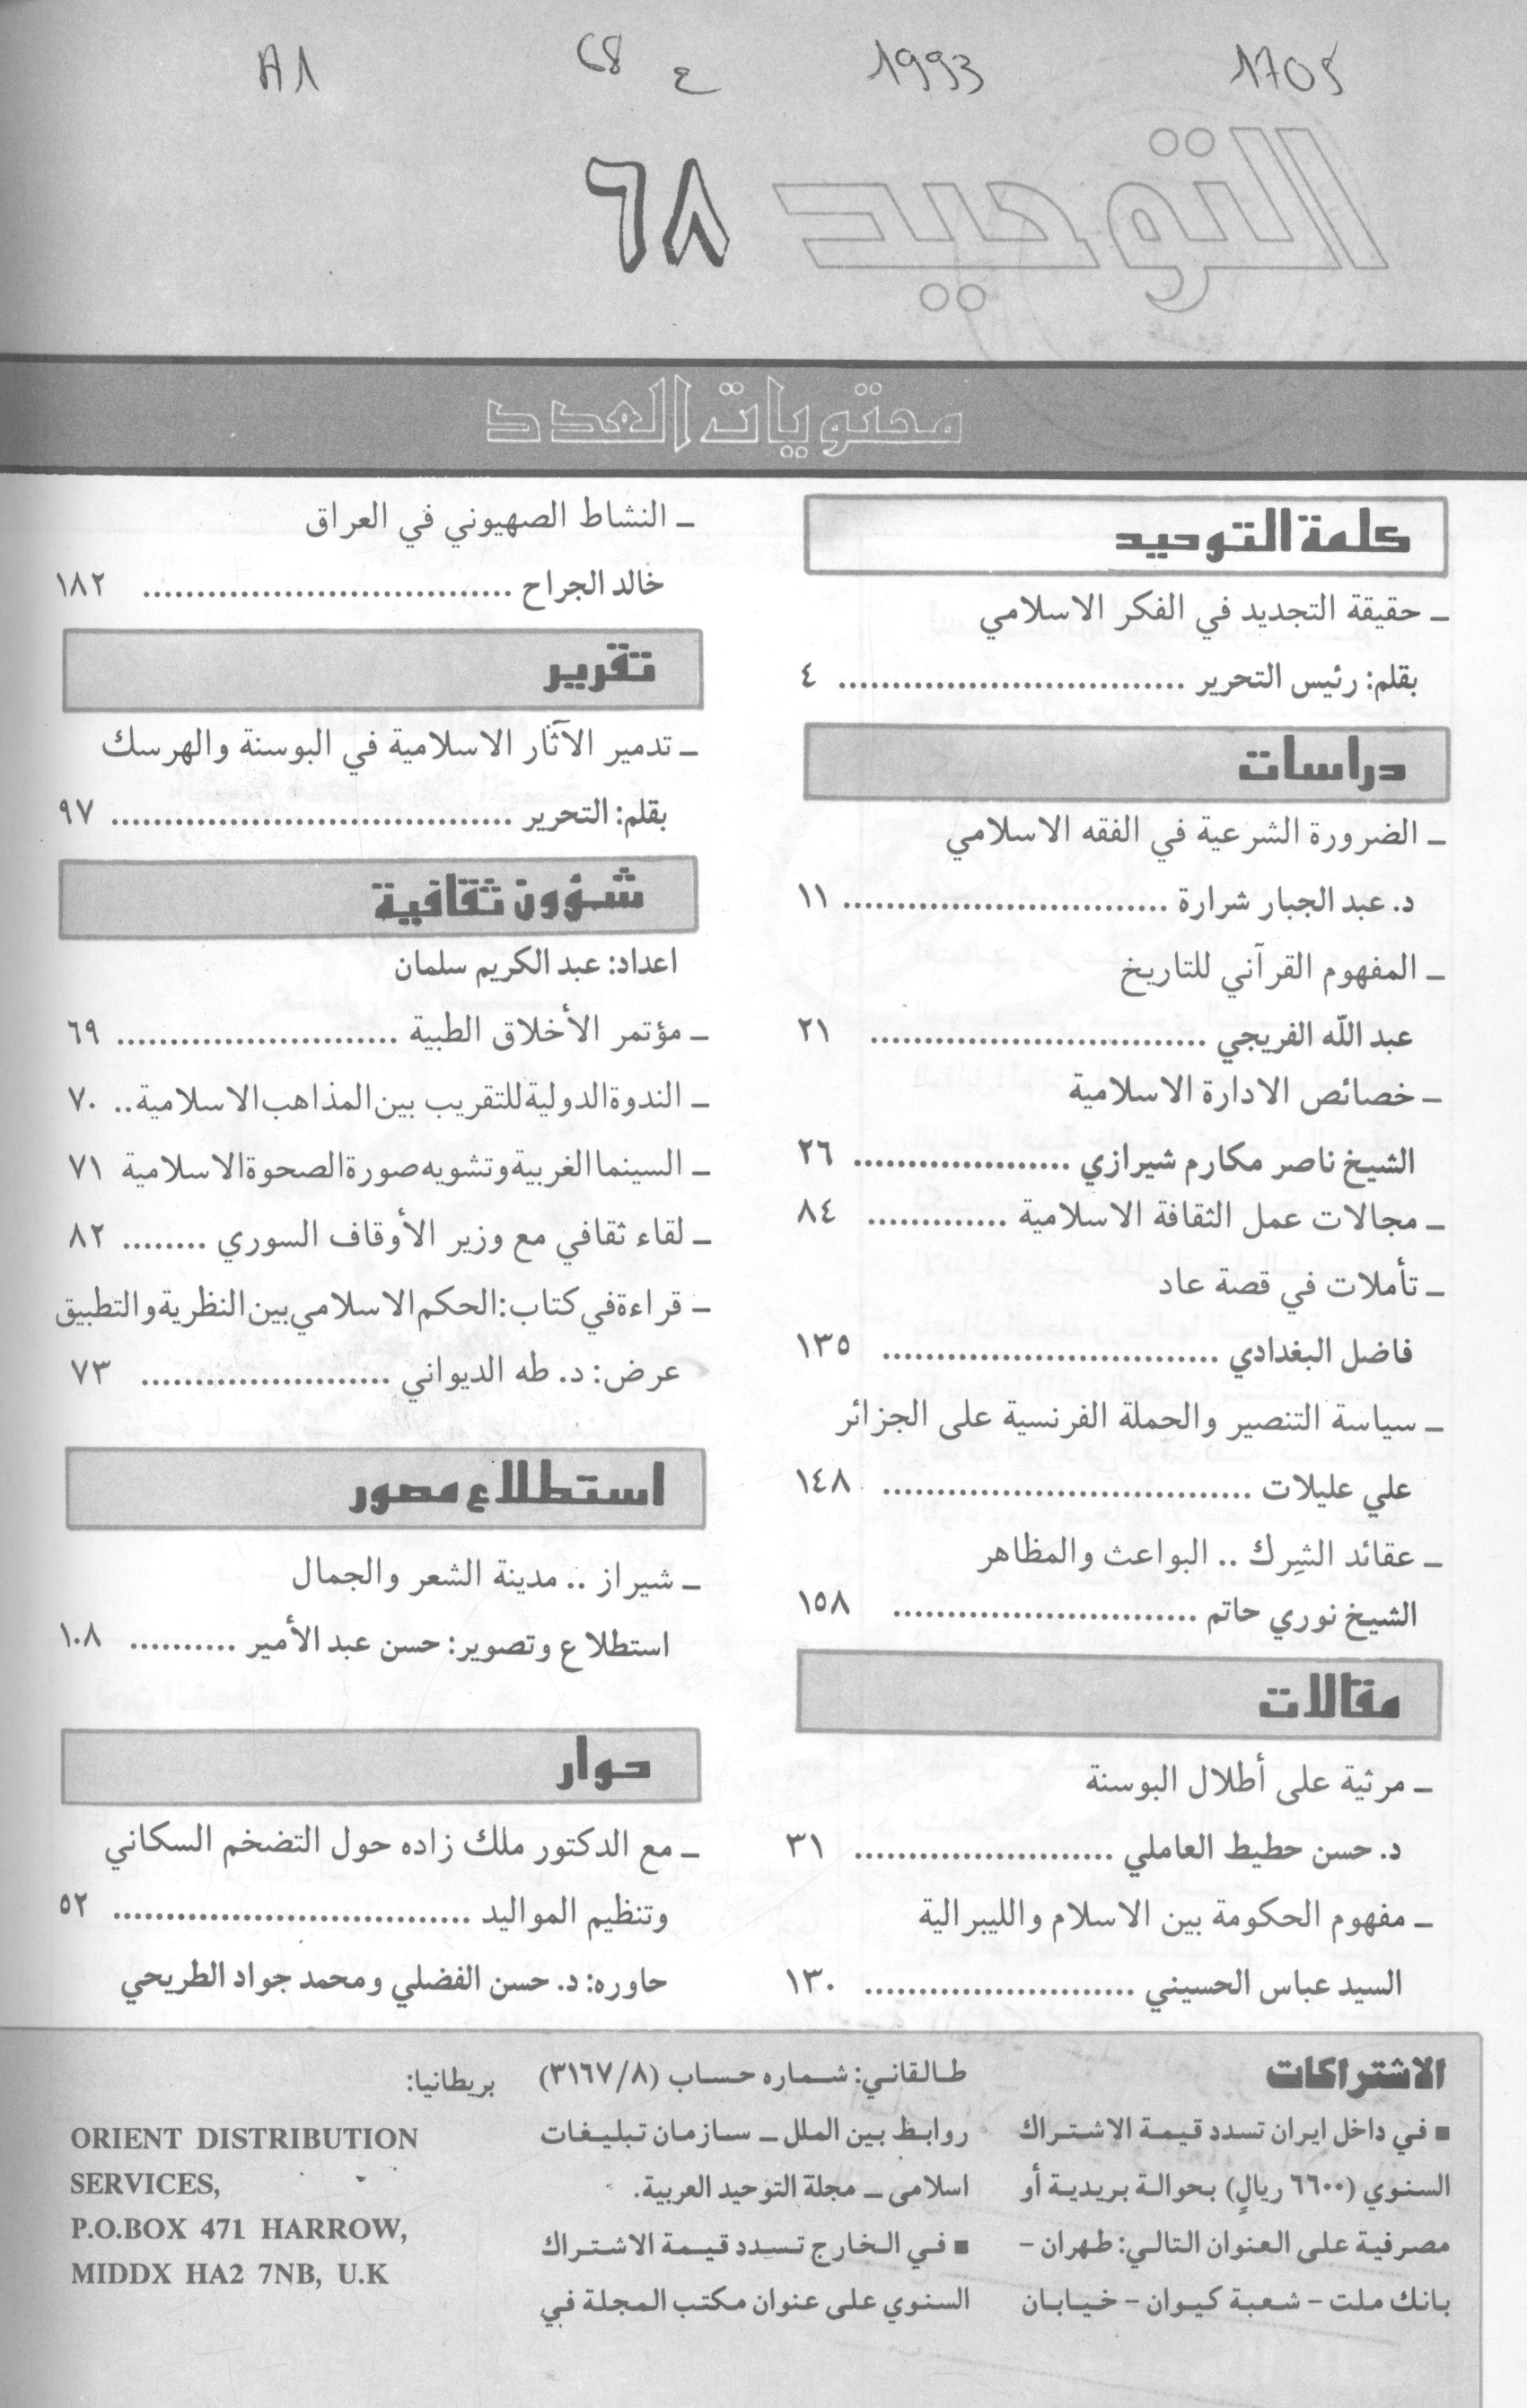 1705
1993
ع 68
A1
التوحيد ٦٨
محتويات العدد
كلمة التوحيد
ـ حقيقة التجديد في الفكر الاسلامي
بقلم: رئيس التحرير ................................. ٤
دراسات
ـ الضرورة الشرعية في الفقه الاسلامي
د. عبد الجبار شرارة ............................... ١١
ـ المفهوم القرآني للتاريخ
عبد اللّه الفريجي ................................ ٢١
ـ خصائص الادارة الاسلامية
الشيخ ناصر مكارم شيرازي ..................... ٢٦
ـ مجالات عمل الثقافة الاسلامية ............. ٨٤
ـ تأملات في قصة عاد
فاضل البغدادي ................................ ١٣٥
ـ سياسة التنصير والحملة الفرنسية على الجزائر
علي عليلات ................................... ١٤٨
ـ عقائد الشِرك .. البواعث والمظاهر
الشيخ نوري حاتم ............................. ١٥٨
مقالات
ـ مرثية على أطلال البوسنة
د. حسن حطيط العاملي ......................... ٣١
ـ مفهوم الحكومة بين الاسلام والليبرالية
السيد عباس الحسيني .......................... ١٣٠
ـ النشاط الصهيوني في العراق
خالد الجراح ................................... ١٨٢
تقرير
ـ تدمير الآثار الاسلامية في البوسنة والهرسك
بقلم: التحرير ...................................... ٩٧
شؤون ثقافية
اعداد: عبد الكريم سلمان
ـ مؤتمر الأخلاق الطبية ........................... ٦٩
ـ الندوة الدولية للتقريب بين المذاهب الاسلامية .. ٧٠
ـ السينما الغربية وتشويه صورة الصحوة الاسلامية ٧١
ـ لقاء ثقافي مع وزير الأوقاف السوري ........ ٨٢
ـ قراءة في كتاب: الحكم الاسلامي بين النظرية والتطبيق
عرض: د. طه الديواني ........................ ٧٣
استطلاع مصور
ـ شيراز .. مدينة الشعر والجمال
استطلاع وتصوير: حسن عبد الأمير .......... ١٠٨
حوار
ـ مع الدكتور ملك زاده حول التضخم السكاني
وتنظيم المواليد .................................. ٥٢
حاوره: د. حسن الفضلي ومحمد جواد الطريحي
الاشتراكات
■ في داخل ايران تسدد قيمة الاشتراك
السنوي (٦٦٠٠ ريالٍ) بحوالة بريدية أو
مصرفية على العنوان التالي: طهران -
بانك ملت - شعبة كيوان - خيابان
طالقاني: شماره حساب (٣١٦٧/٨)
روابط بين الملل ـ سازمان تبليغات
اسلامى ـ مجلة التوحيد العربية.
■ في الخارج تسدد قيمة الاشتراك
السنوي على عنوان مكتب المجلة في
بريطانيا:
ORIENT DISTRIBUTION
SERVICES,
P.O.BOX 471 HARROW,
MIDDX HA2 7NB, U.K